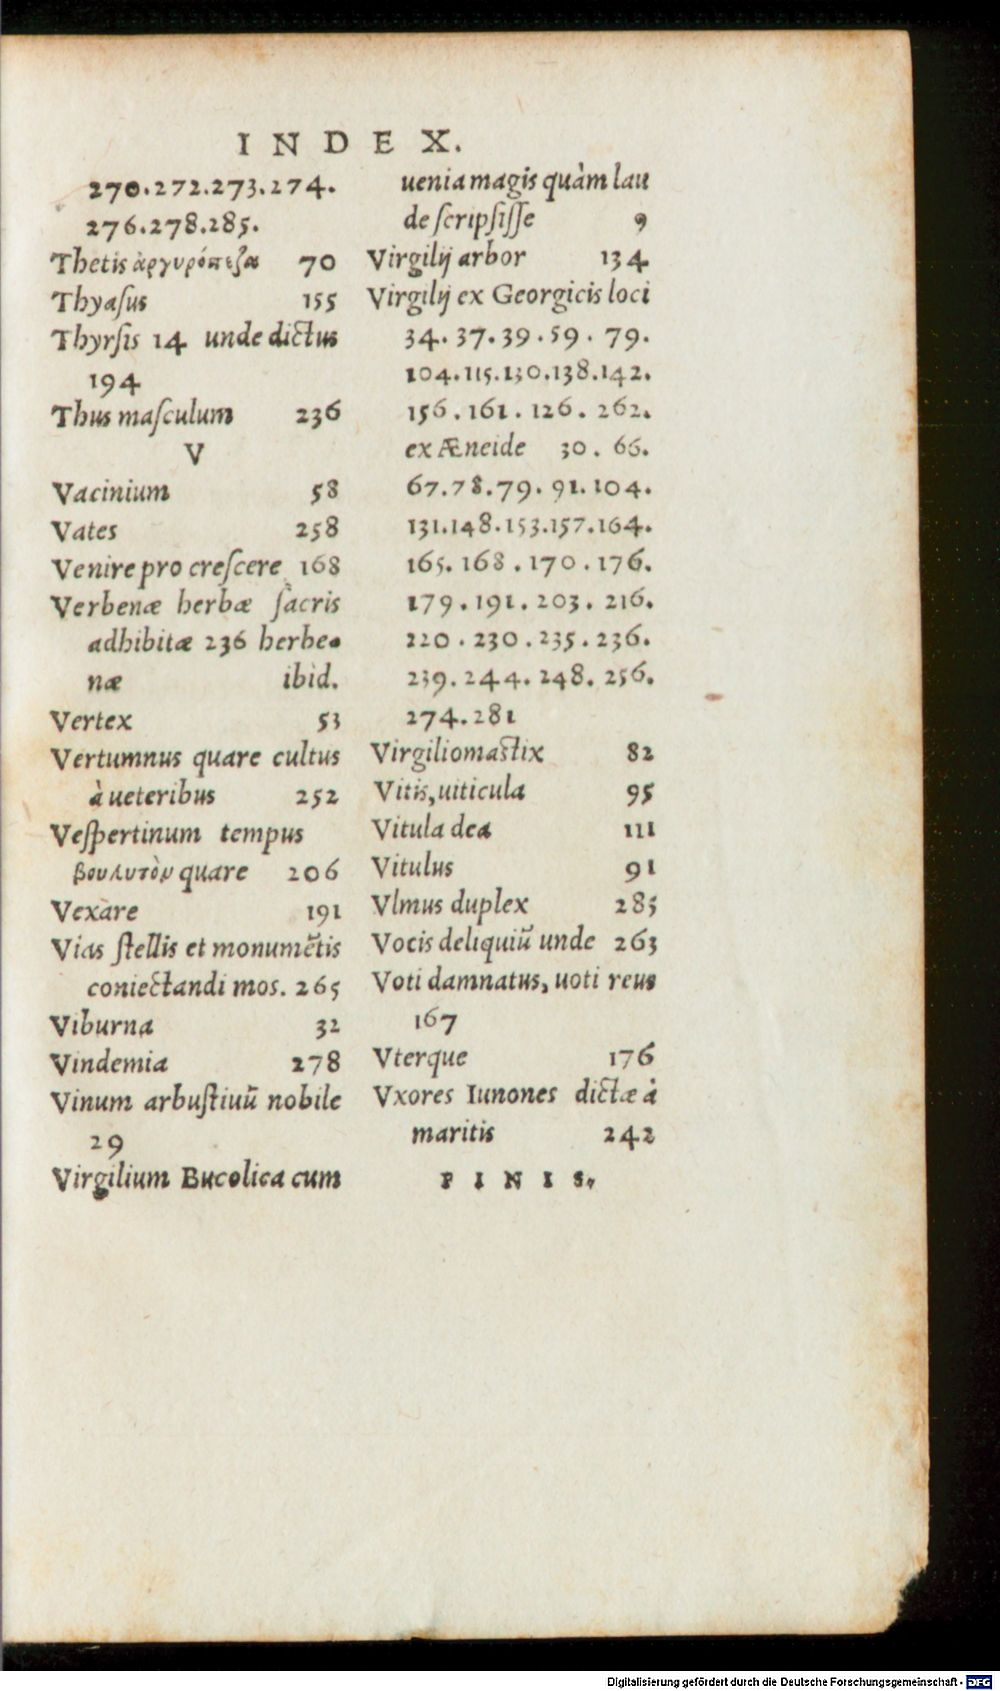 INDEX.
270.272.273.274.
276.278.285.
Thetis ἀργυρόπεζα 70
Thyaſus 155
Thyrſis 14 unde dictus
194
Thus maſculum 236
V
Vacinium 58
Vates 258
Venire pro creſcere 168
Verbenæ herbæ ſacris
adhibitæ 236 herbe-
næ ibid.
Vertex 53
Vertumnus quare cultus
à ueteribus 252
Veſpertinum tempus
βουλυτὸν quare 206
Vexare 191
Vias ſtellis et monumẽtis
coniectandi mos. 265
Viburna 32
Vindemia 278
Vinum arbuſtiuũ nobile
29
Virgilium Bucolica cum
uenia magis quàm lau
de ſcripſiſſe 9
Virgilij arbor 134
Virgilij ex Georgicis loci
34.37.39.59.79.
104.115.130.138.142.
156.161.126.262.
ex Æneide 30.66.
67.78.79.91.104.
131.148.153.157.164.
165.168.170.176.
179.191.203.216.
220.230.235.236.
239.244.248.256.
274.281
Virgiliomastix 82
Vitis, uiticula 95
Vitula dea 111
Vitulus 91
Vlmus duplex 285
Vocis deliquiũ unde 263
Voti damnatus, uoti reus
167
Vterque 176
Vxores Iunones dictæ à
maritis 242
FINIS.
Digitalisierung gefördert durch die Deutsche Forschungsgemeinschaft - DFG